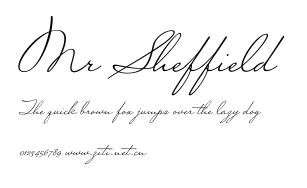 Mr Sheffield
The quick brown fox jumps over the lazy dog
0123456789 www.ziti.net.cn